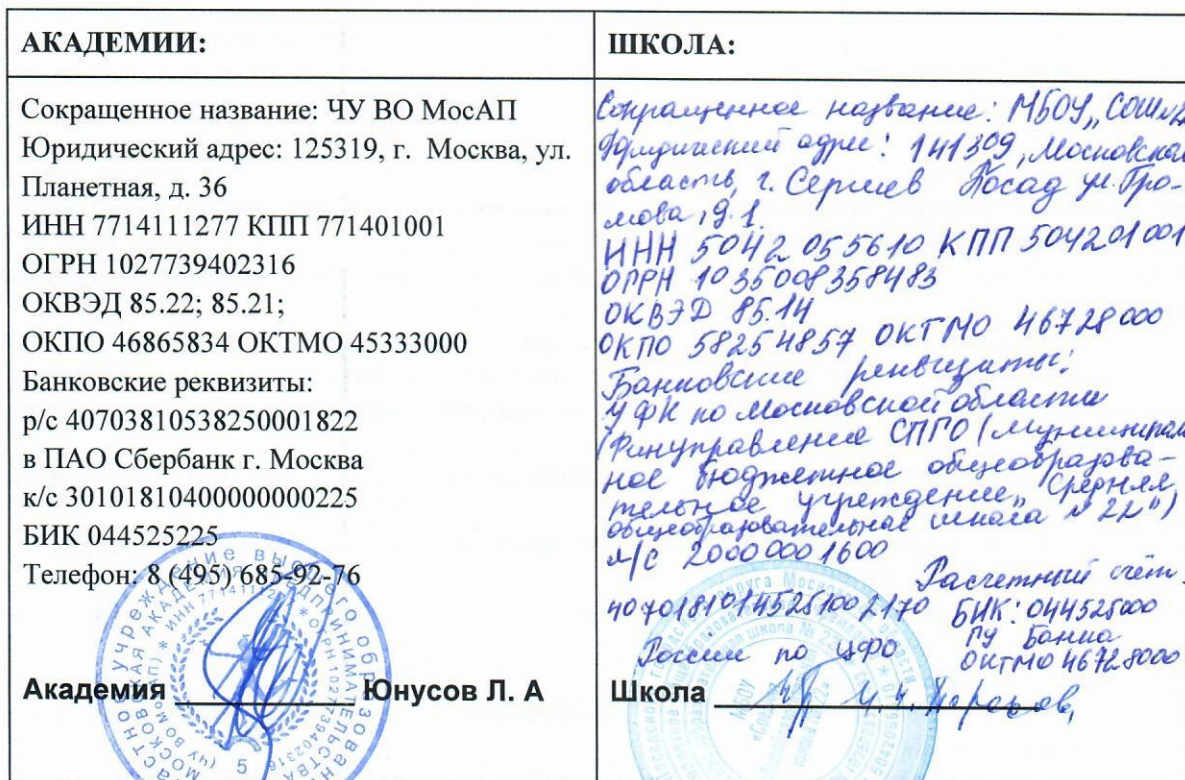 АКАДЕМИИ:
Сокращенное название: ЧУ ВО МосАП
Юридический адрес: 125319, г. Москва, ул.
Планетная, д. 36
ИНН 7714111277 КПП 771401001
ОГРН 1027739402316
ОКВЭД 85.22; 85.21;
ОКПО 46865834 ОКТМО 45333000
Банковские реквизиты:
р/с 40703810538250001822
в ПАО Сбербанк г. Москва
к/с 30101810400000000225
БИК 044525225
Телефон: 8 (495) 685-92-76
Академия Юнусов Л. А
ШКОЛА:
Сокращенное название: МБОУ „СОШ
Юридический адрес: 141309, Московская
область, г. Сергиев Посад ул. Гро-
мова, д. 1
ИНН 5042 055610 КПП 504201001
ОГРН 1035008358483
ОКВЭД 85.14
ОКПО 58254857 ОКТМО 46728000
Банковские реквизиты:
УФК по Московской области
(Финуправление СПГО (муниципаль
ное бюджетное общеобразова-
тельное учреждение „Средняя
общеобразовательная школа №22")
л/с 20000001600
Расчетный счёт:
40701810145251002170 БИК: 044525000
ГУ Банка
России по ЦФО ОКТМО 46728000
Школа